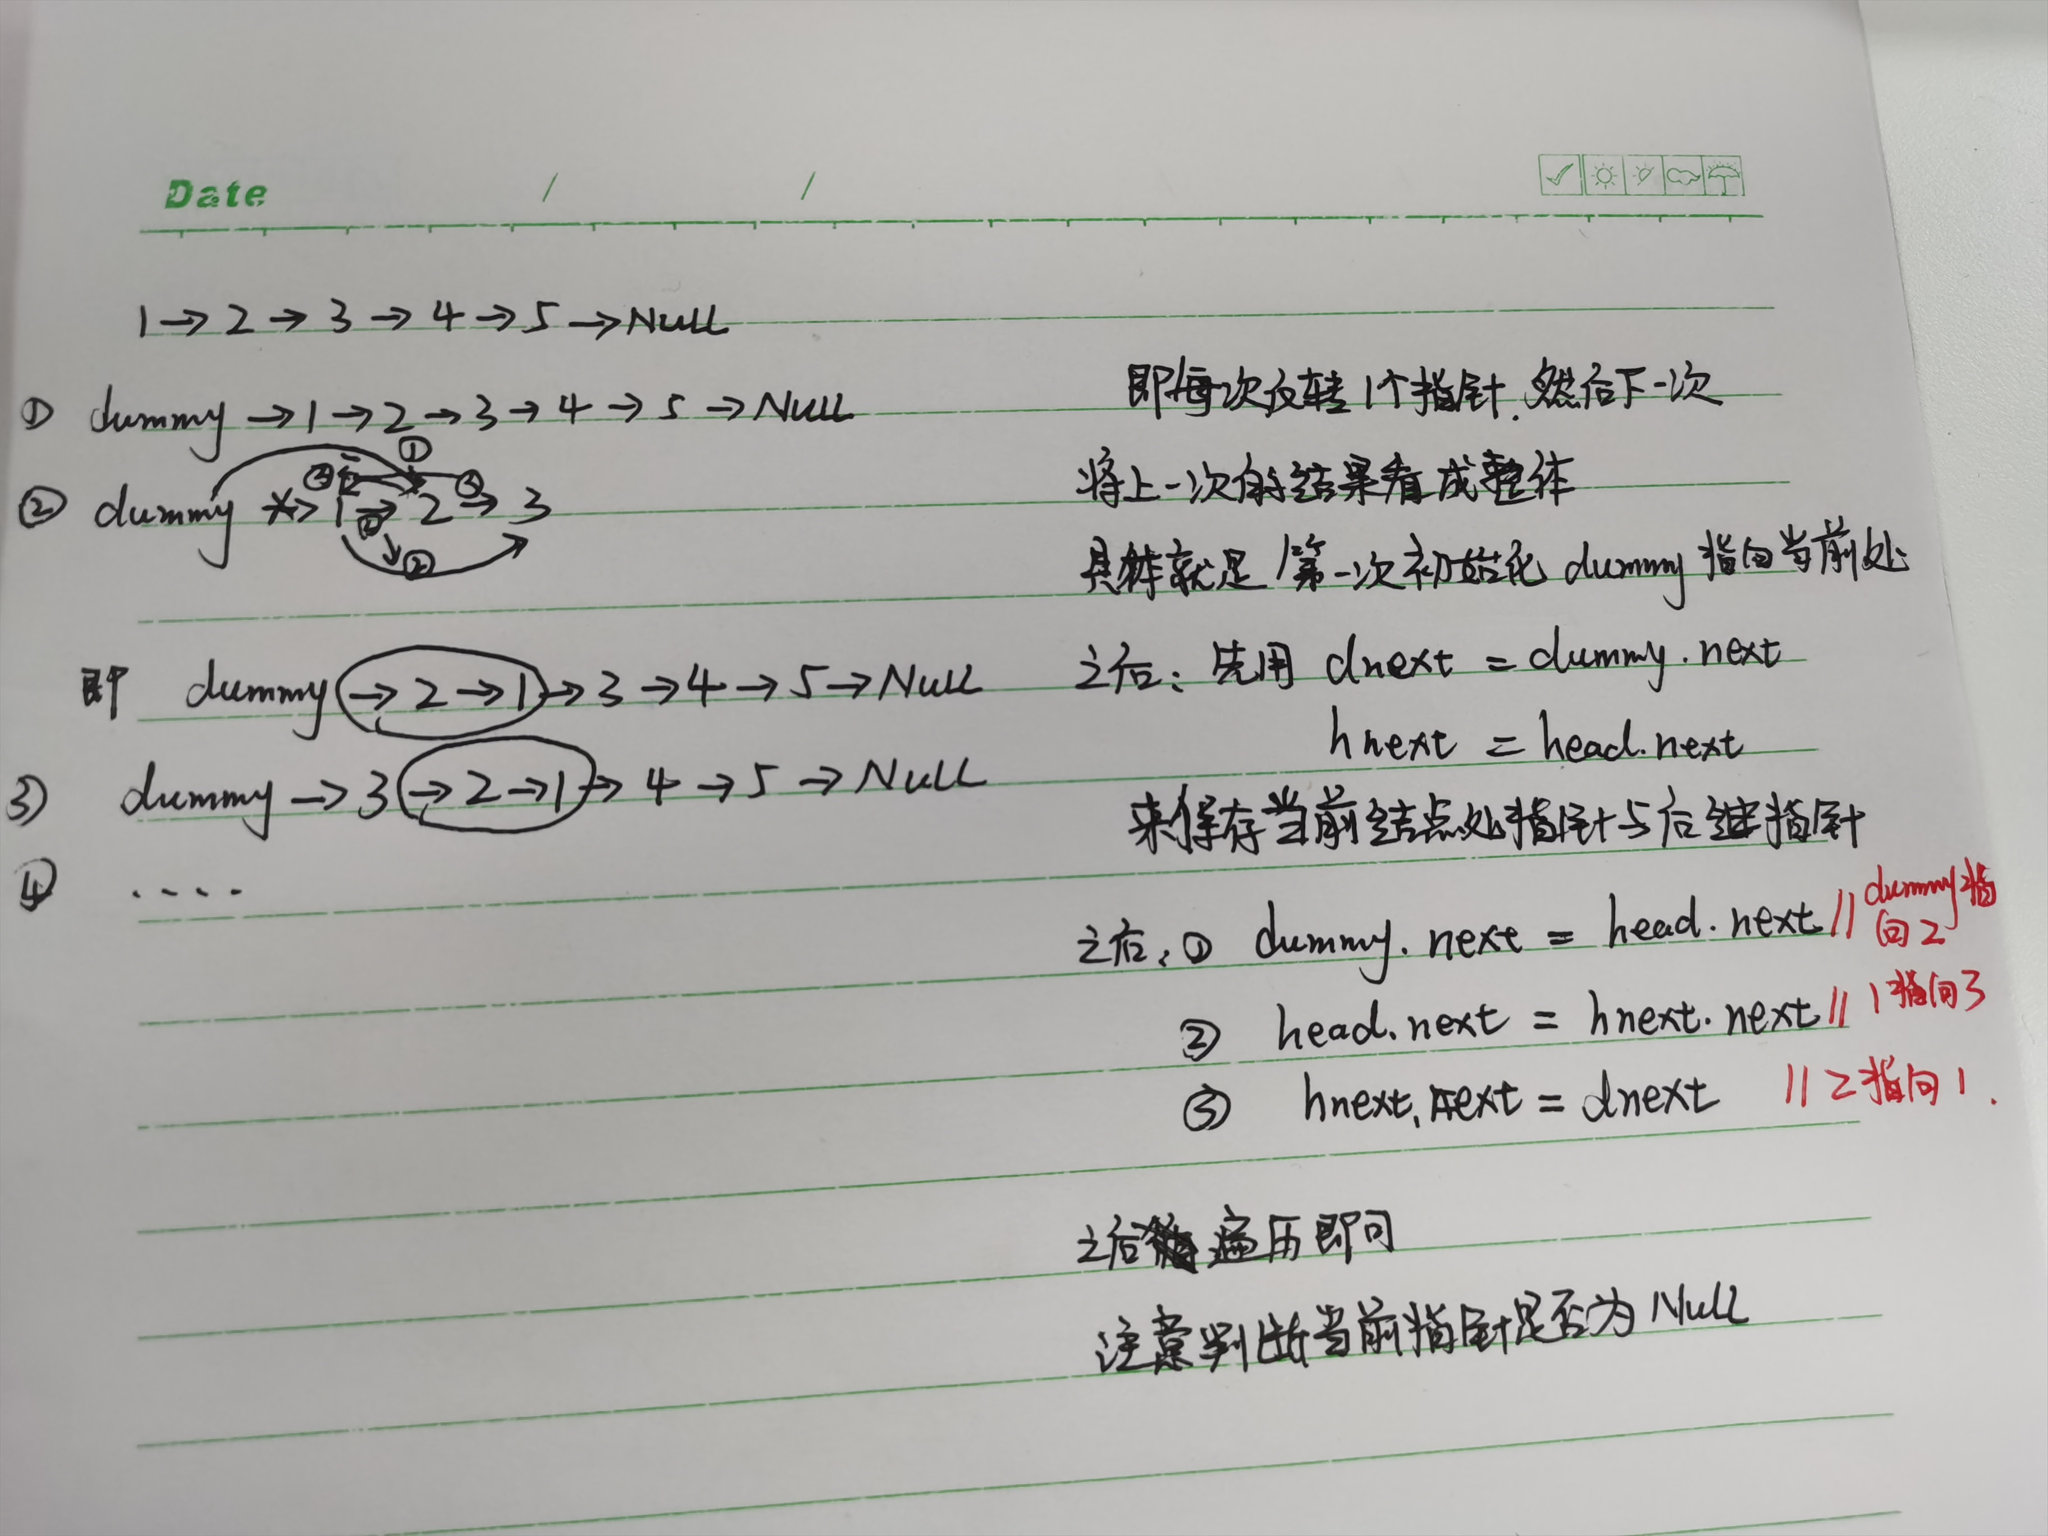 Date / /
1→2→3→4→5→Null
① dummy→1→2→3→4→5→Null
② dummy→1→2→3
① ② ③
即 dummy→2→1→3→4→5→Null
③ dummy→3→2→1→4→5→Null
④ ····
即每次反转1个指针.然后下一次
将上一次的结果看成整体
具体就是 第一次初始化 dummy 指向当前处
之后: 先用 dnext = dummy.next
hnext = head.next
来保存当前结点处指针与后继指针
之后: ① dummy.next = head.next // dummy指
向2
② head.next = hnext.next // 1指向3
③ hnext.next = dnext // 2指向1.
之后 遍历即可
注意判断当前指针是否为 Null